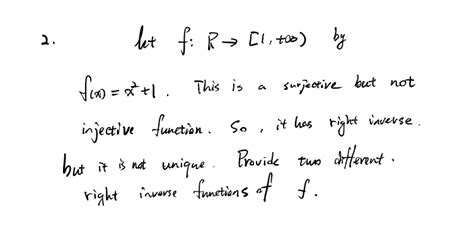 2. let f: R → [1, +∞) by
f(x) = x²+1. This is a surjective but not
injective function. So, it has right inverse.
but it is not unique. Provide two different.
right inverse functions of f.